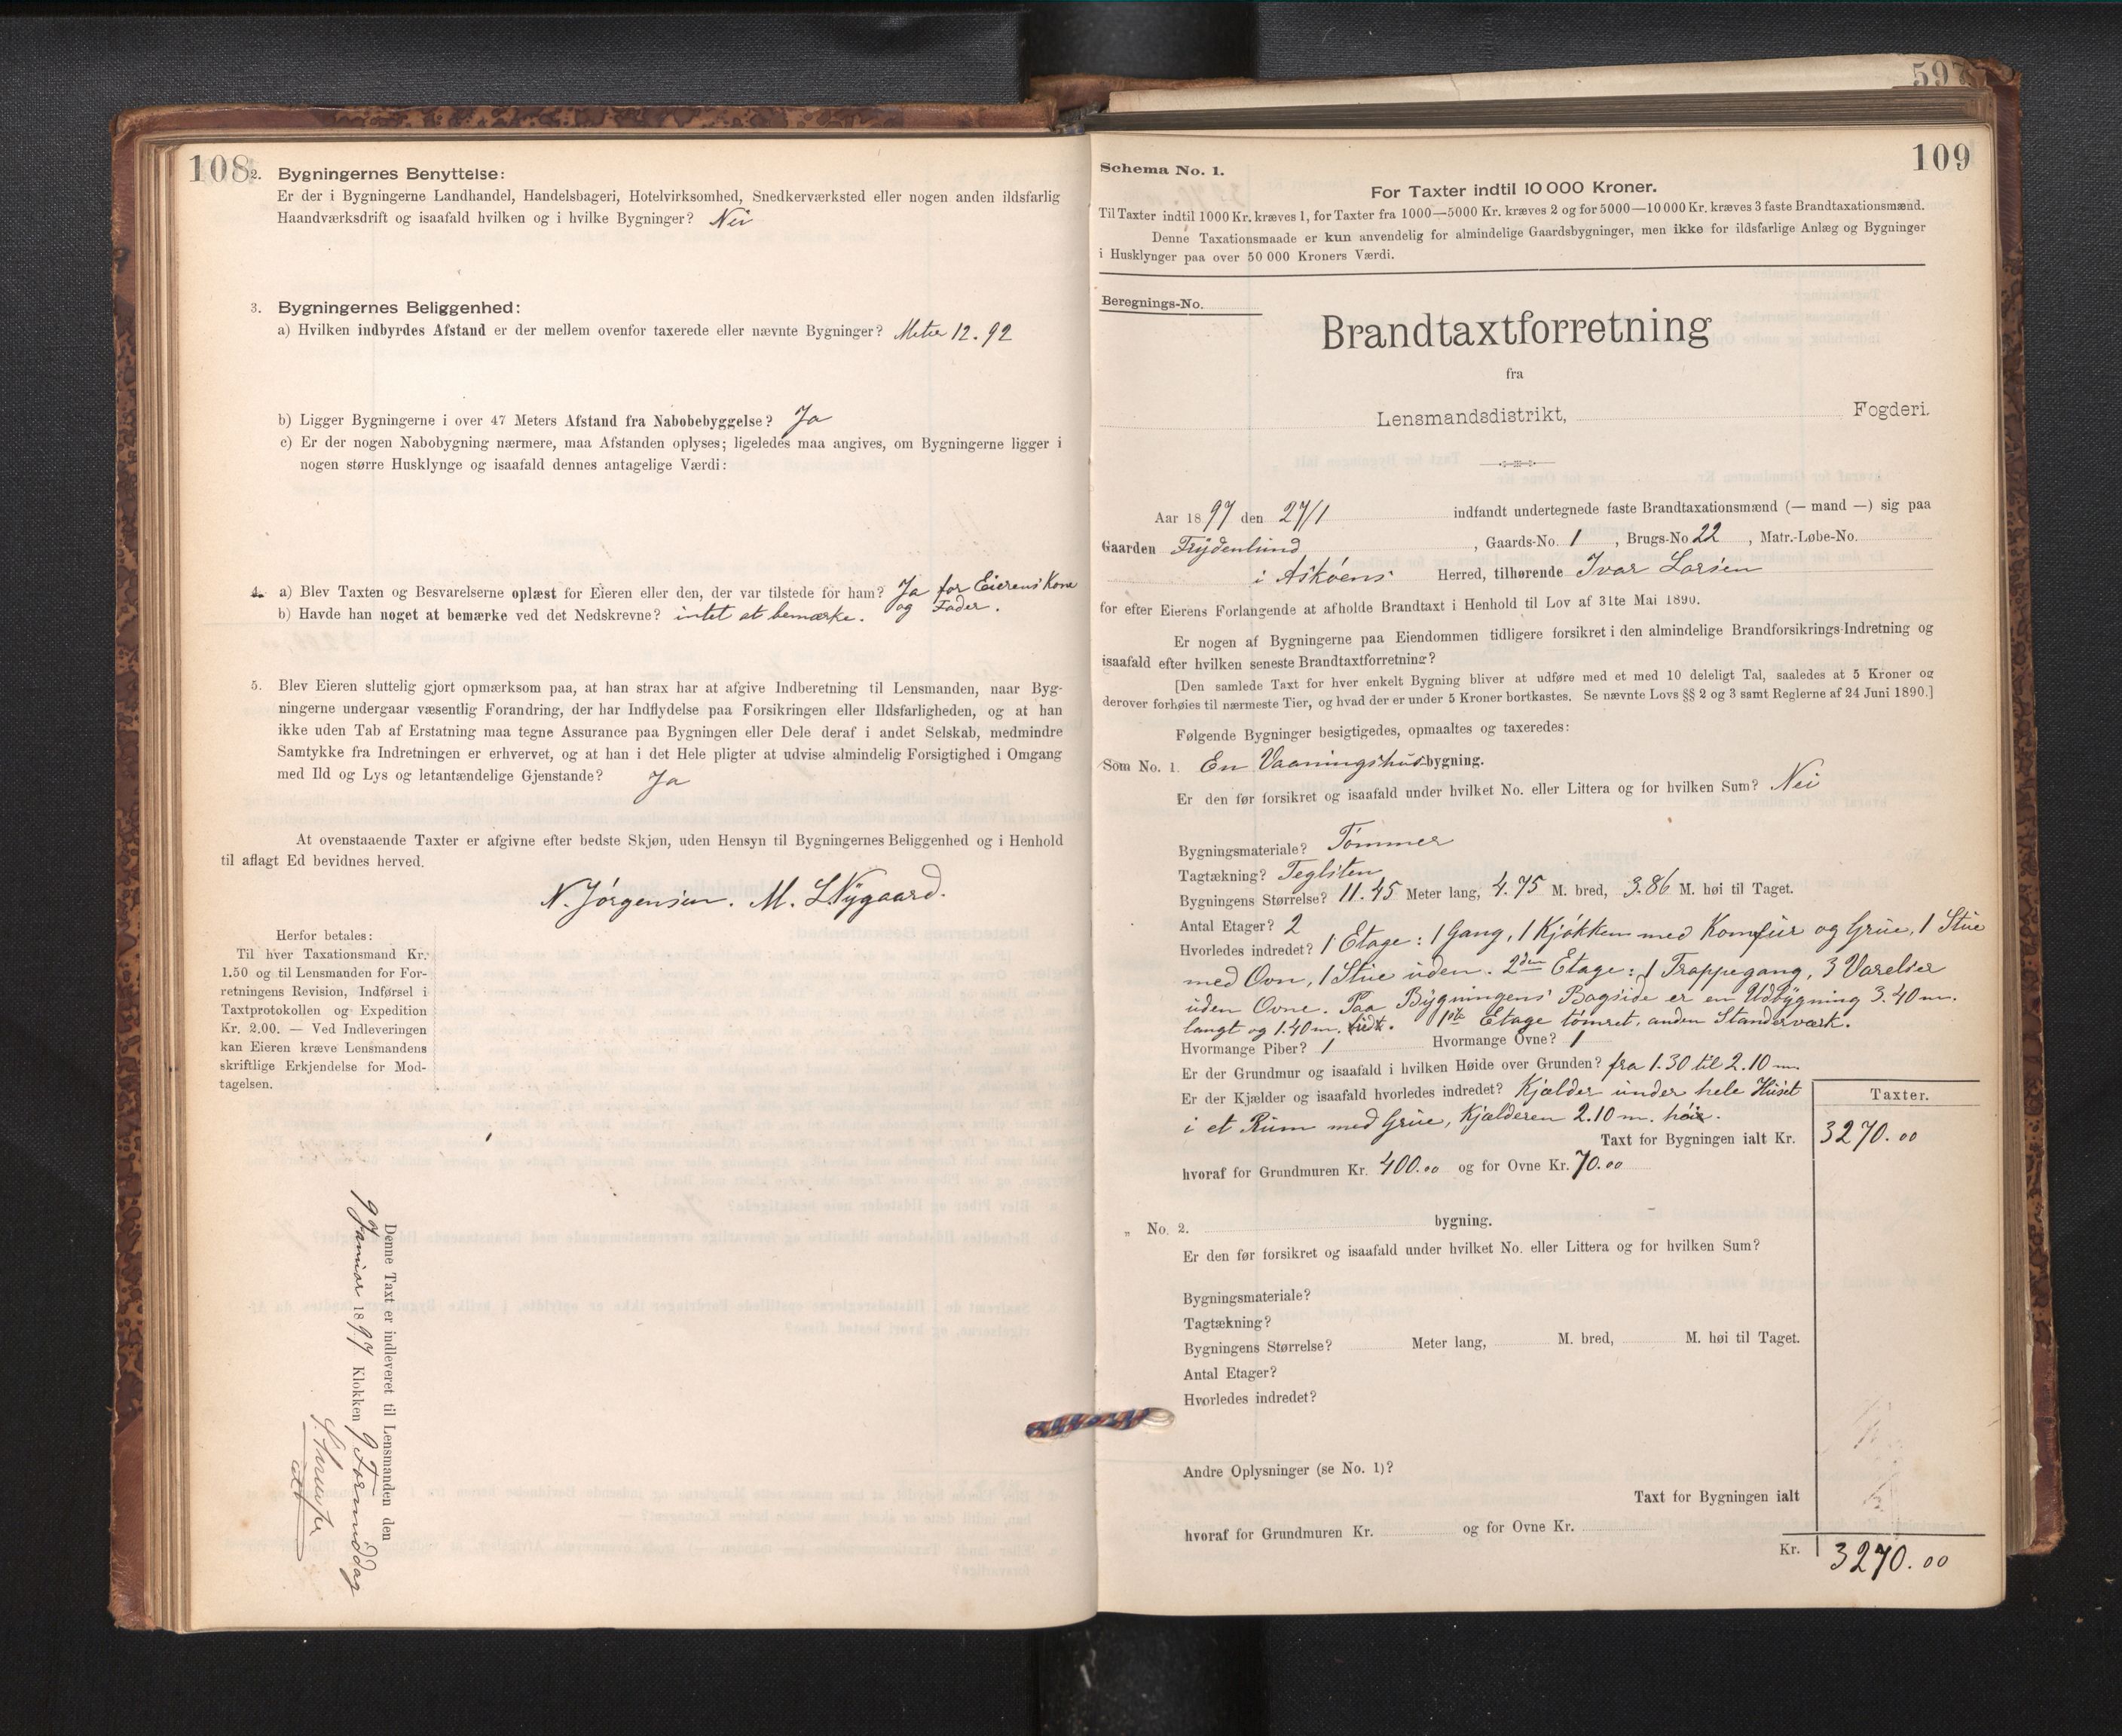 108
2. Bygningernes Benyttelse:
Er der i Bygningerne Landhandel, Handelsbageri, Hotelvirksomhed, Snedkerværksted eller nogen anden ildsfarlig
Haandværksdrift og isaafald hvilken og i hvilke Bygninger? Nei
3. Bygningernes Beliggenhed:
a) Hvilken indbyrdes Afstand er der mellem ovenfor taxerede eller nævnte Bygninger? Meter 12.92
b) Ligger Bygningerne i over 47 Meters Afstand fra Nabobebyggelse? Ja
c) Er der nogen Nabobygning nærmere, maa Afstanden oplyses; ligeledes maa angives, om Bygningerne ligger i
nogen større Husklynge og isaafald dennes antagelige Værdi:
4. a) Blev Taxten og Besvarelserne oplæst for Eieren eller den, der var tilstede for ham? Ja for Eierens Kone
og Fader.
b) Havde han noget at bemærke ved det Nedskrevne? intet at bemærke.
5. Blev Eieren sluttelig gjort opmærksom paa, at han strax har at afgive Indberetning til Lensmanden, naar Byg-
ningerne undergaar væsentlig Forandring, der har Indflydelse paa Forsikringen eller Ildsfarligheden, og at han
ikke uden Tab af Erstatning maa tegne Assurance paa Bygningen eller Dele deraf i andet Selskab, medmindre
Samtykke fra Indretningen er erhvervet, og at han i det Hele pligter at udvise almindelig Forsigtighed i Omgang
med Ild og Lys og letantændelige Gjenstande? Ja
At ovenstaaende Taxter er afgivne efter bedste Skjøn, uden Hensyn til Bygningernes Beliggenhed og i Henhold
til aflagt Ed bevidnes herved.
N. Jørgensen. M. L Nygaard.
Herfor betales:
Til hver Taxationsmand Kr.
1.50 og til Lensmanden for For-
retningens Revision, Indførsel i
Taxtprotokollen og Expedition
Kr. 2.00. — Ved Indleveringen
kan Eieren kræve Lensmandens
skriftlige Erkjendelse for Mod-
tagelsen.
Denne Taxt er indleveret til Lensmanden den
9 Januar 1897 Klokken 9 Formiddag
597
109
Schema No. 1.
For Taxter indtil 10 000 Kroner.
Til Taxter indtil 1000 Kr. kræves 1, for Taxter fra 1000—5000 Kr. kræves 2 og for 5000—10 000 Kr. kræves 3 faste Brandtaxationsmænd.
Denne Taxationsmaade er kun anvendelig for almindelige Gaardsbygninger, men ikke for ildsfarlige Anlæg og Bygninger
i Husklynger paa over 50 000 Kroners Værdi.
Beregnings-No.
Brandtaxtforretning
fra
Lensmandsdistrikt, Fogderi.
Aar 1897 den 27/1 indfandt undertegnede faste Brandtaxationsmænd (— mand —) sig paa
Gaarden Frydenlund, Gaards-No. 1, Brugs-No 22, Matr.-Løbe-No.
i Askøens Herred, tilhørende Ivar Larsen
for efter Eierens Forlangende at afholde Brandtaxt i Henhold til Lov af 31te Mai 1890.
Er nogen af Bygningerne paa Eiendommen tidligere forsikret i den almindelige Brandforsikrings-Indretning og
isaafald efter hvilken seneste Brandtaxtforretning?
[Den samlede Taxt for hver enkelt Bygning bliver at udføre med et med 10 deleligt Tal, saaledes at 5 Kroner og
derover forhøies til nærmeste Tier, og hvad der er under 5 Kroner bortkastes. Se nævnte Lovs §§ 2 og 3 samt Reglerne af 24 Juni 1890.]
Følgende Bygninger besigtigedes, opmaaltes og taxeredes:
Som No. 1. En Vaaningshusbygning.
Er den før forsikret og isaafald under hvilket No. eller Littera og for hvilken Sum? Nei
Bygningsmateriale? Tømmer
Tagtækning? Teglsten
Bygningens Størrelse? 11.45 Meter lang, 4.75 M. bred, 3.86 M. høi til Taget.
Antal Etager? 2
Hvorledes indredet? 1 Etage: 1 Gang, 1 Kjøkken med Komfür og Grüe, 1 Stüe
med Ovn, 1 Stüe uden. 2den Etage: 1 Trappegang, 3 Værelser
uden Ovne. Paa Bygningens Bagside er en Udbygning 3.40 m.
langt og 1.40 m. bredt. 1ste Etage tømret, anden Standerværk.
Hvormange Piber? 1 Hvormange Ovne? 1
Er der Grundmur og isaafald i hvilken Høide over Grunden? fra 1.30 til 2.10 m.
Er der Kjælder og isaafald hvorledes indredet? Kjælder under hele Huset
i et Rüm med Grüe, Kjælderen 2.10 m. høi.
Taxter.
Taxt for Bygningen ialt Kr. 3270.00
hvoraf for Grundmuren Kr. 400.00 og for Ovne Kr. 70.00
„ No. 2. bygning.
Er den før forsikret og isaafald under hvilket No. eller Littera og for hvilken Sum?
Bygningsmateriale?
Tagtækning?
Bygningens Størrelse? Meter lang, M. bred, M. høi til Taget.
Antal Etager?
Hvorledes indredet?
Andre Oplysninger (se No. 1)?
Taxt for Bygningen ialt
hvoraf for Grundmuren Kr. og for Ovne Kr.
Kr. 3270.00